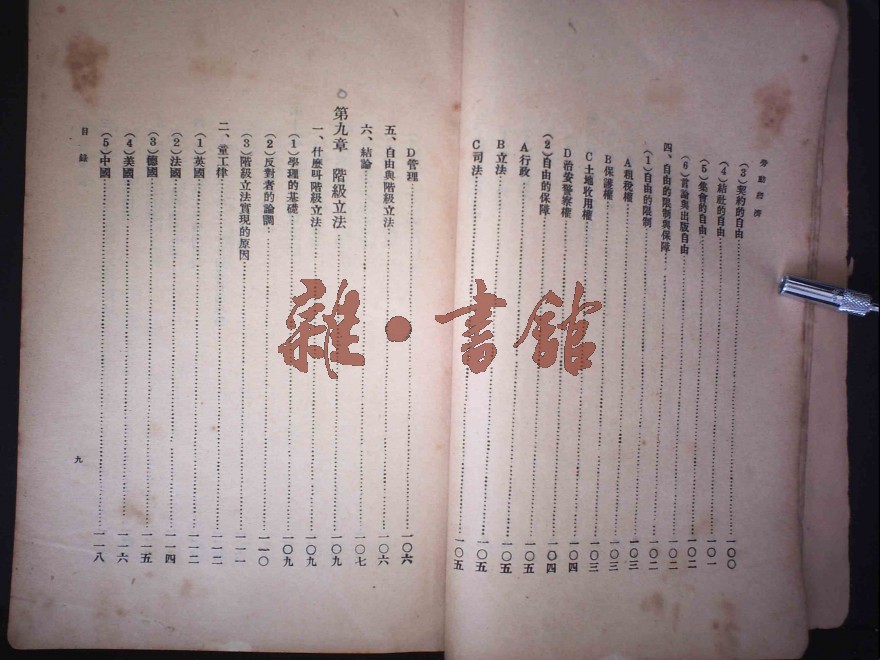 勞動經濟
(3)契約的自由……一〇〇
(4)結社的自由……一〇一
(5)集會的自由……一〇一
(6)言論與出版自由……一〇二
四、自由的限制與保障……一〇二
(1)自由的限制……一〇二
A租稅權……一〇三
B保護權……一〇三
C土地收用權……一〇三
D治安警察權……一〇四
(2)自由的保障……一〇四
A行政……一〇五
B立法……一〇五
C司法……一〇五
D管理……一〇六
五、自由與階級立法……一〇六
六、結論……一〇七
第九章 階級立法……一〇九
一、什麼叫階級立法……一〇九
(1)學理的基礎……一〇九
(2)反對者的論調……一一〇
(3)階級立法實現的原因……一一一
二、童工律……一一二
(1)英國……一一二
(2)法國……一一四
(3)德國……一一五
(4)美國……一一六
(5)中國……一一八
目錄
九
雜·書館